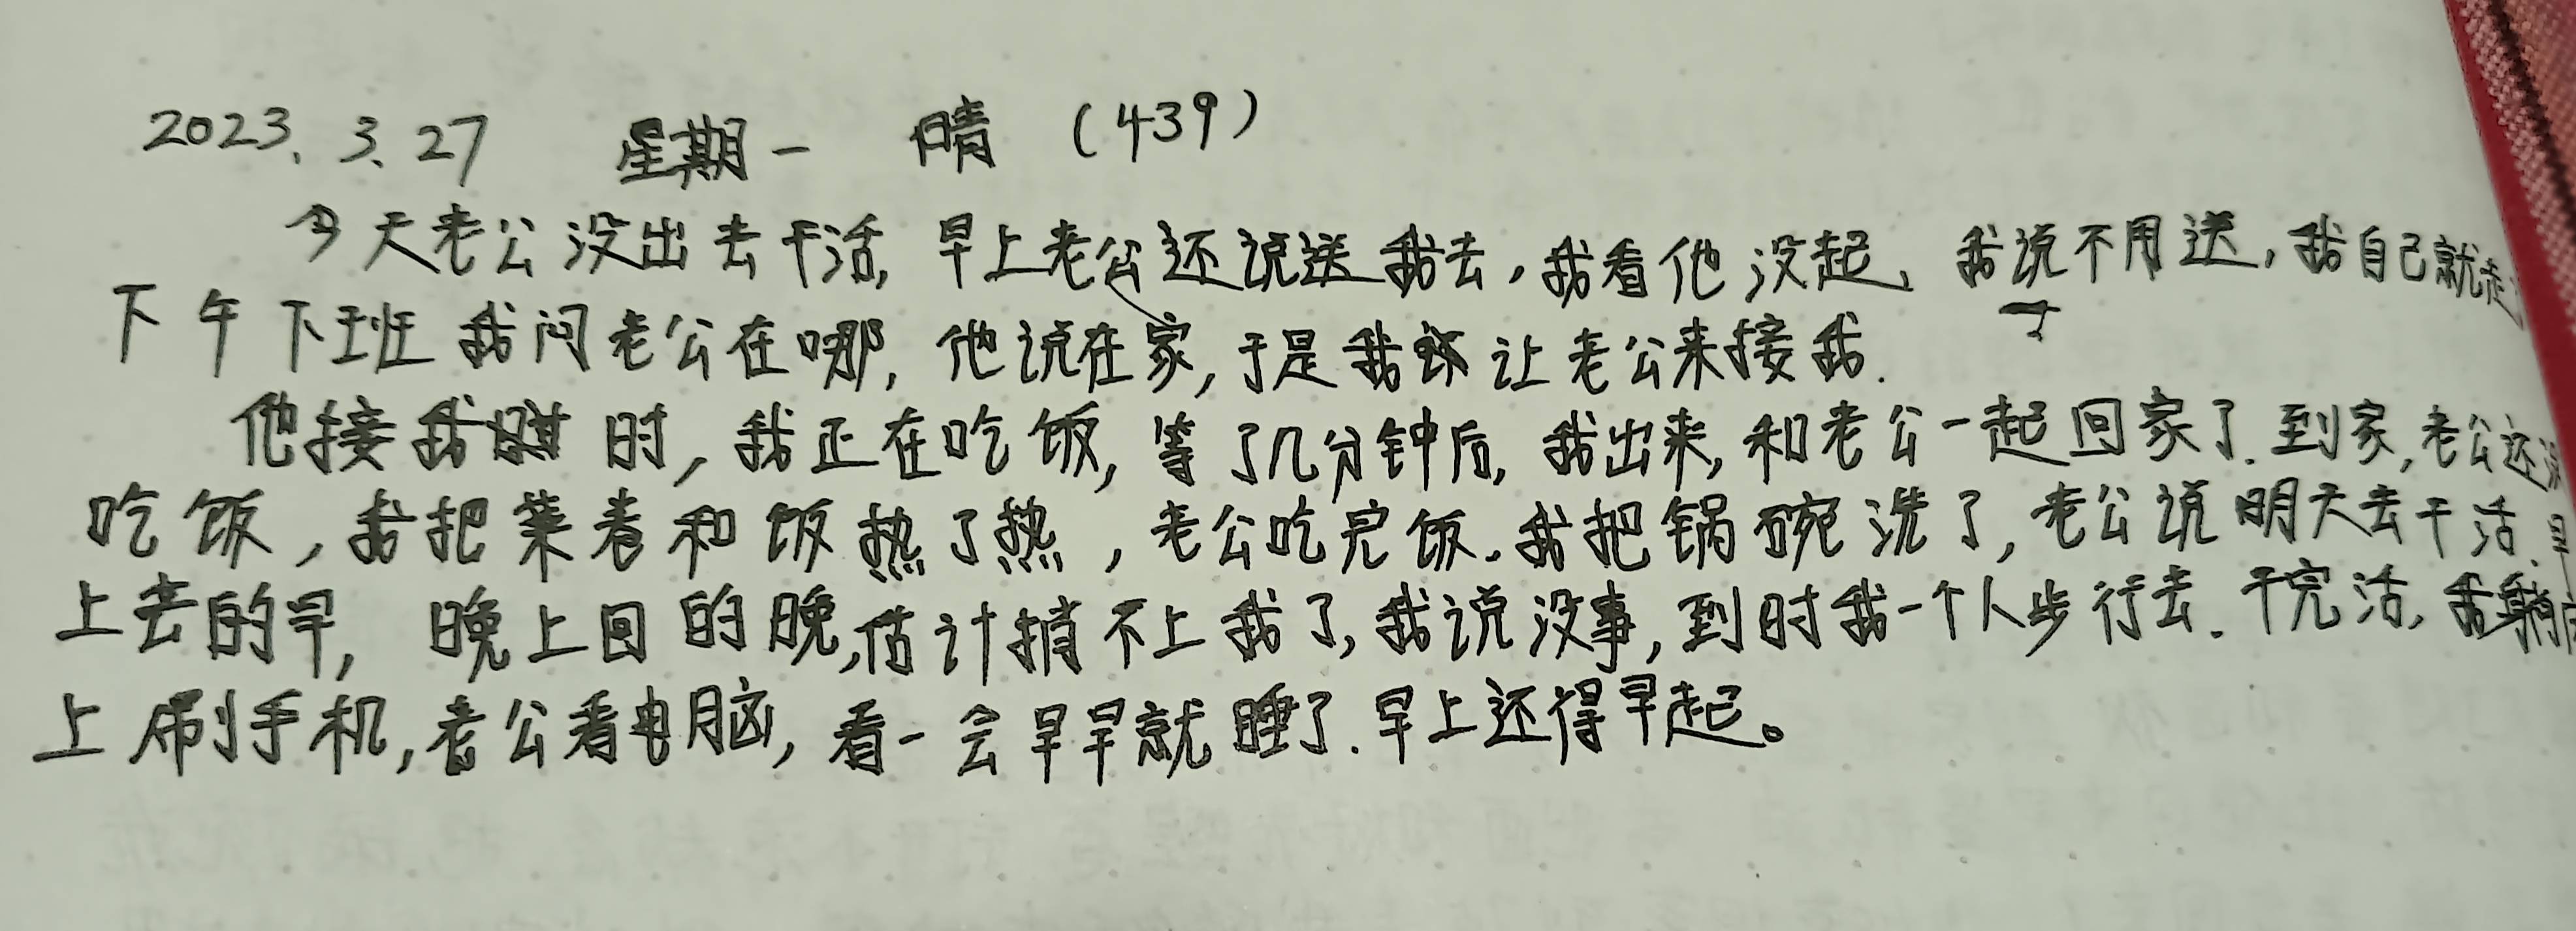 2023.3.27 星期一 晴 (439)
今天老公没出去干活, 早上老公还说送我去,我看他没起、我说不用送,我自己就走
了
下午下班我问老公在哪,他说在家,于是我让老公来接我.
他接我时,我正在吃饭,等了几分钟后,我出来,和老公一起回家了.到家,老公还没
吃饭,我把菜卷和饭热了热,老公吃完饭.我把锅碗洗了,老公说明天去干活.早
上去的早,晚上回的晚,估计捎不上我了,我说没事,到时我一个人步行去.干完活,我躺
上刷手机,老公看电脑,看一会早早就睡了.早上还得早起。